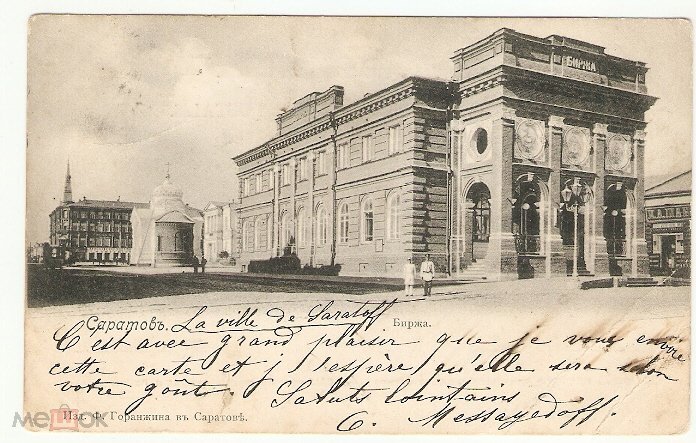 БИРЖА
Саратовъ. La ville de Saratoff Биржа.
C'est avec grand plaisir que je vous envoie
cette carte et j'espère qu'elle sera selon
votre goût. Saluts lointains
C. Messayedoff.
Изд. Ф. Горанжина въ Саратовѣ.
мешок